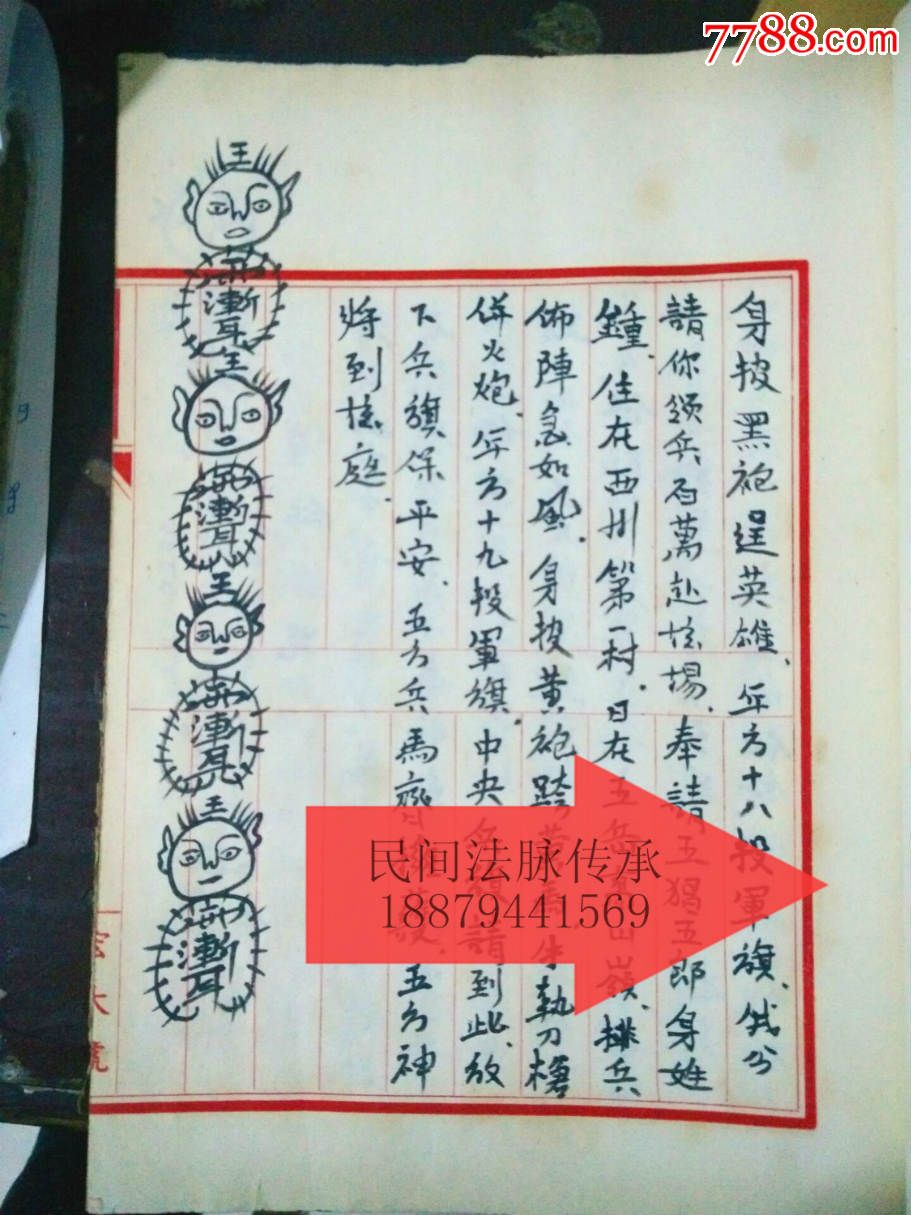 7788.com
身披黑袍逞英雄、年方十八投軍旗、我今
請你领兵百萬赴坛場、奉請五猖五郎身姓
鍾、住在西川第一村、日在五岳山嶺、排兵
佈陣急如風、身披黄袍跨馬、手執刀槍
併火炮、年方十九投軍旗、中央請到此、放
下兵旗保平安、五方兵馬齊、五方神
将到坛庭、
王
漸耳
王
漸耳
王
漸耳
王
漸耳
民间法脉传承
18879441569
大號